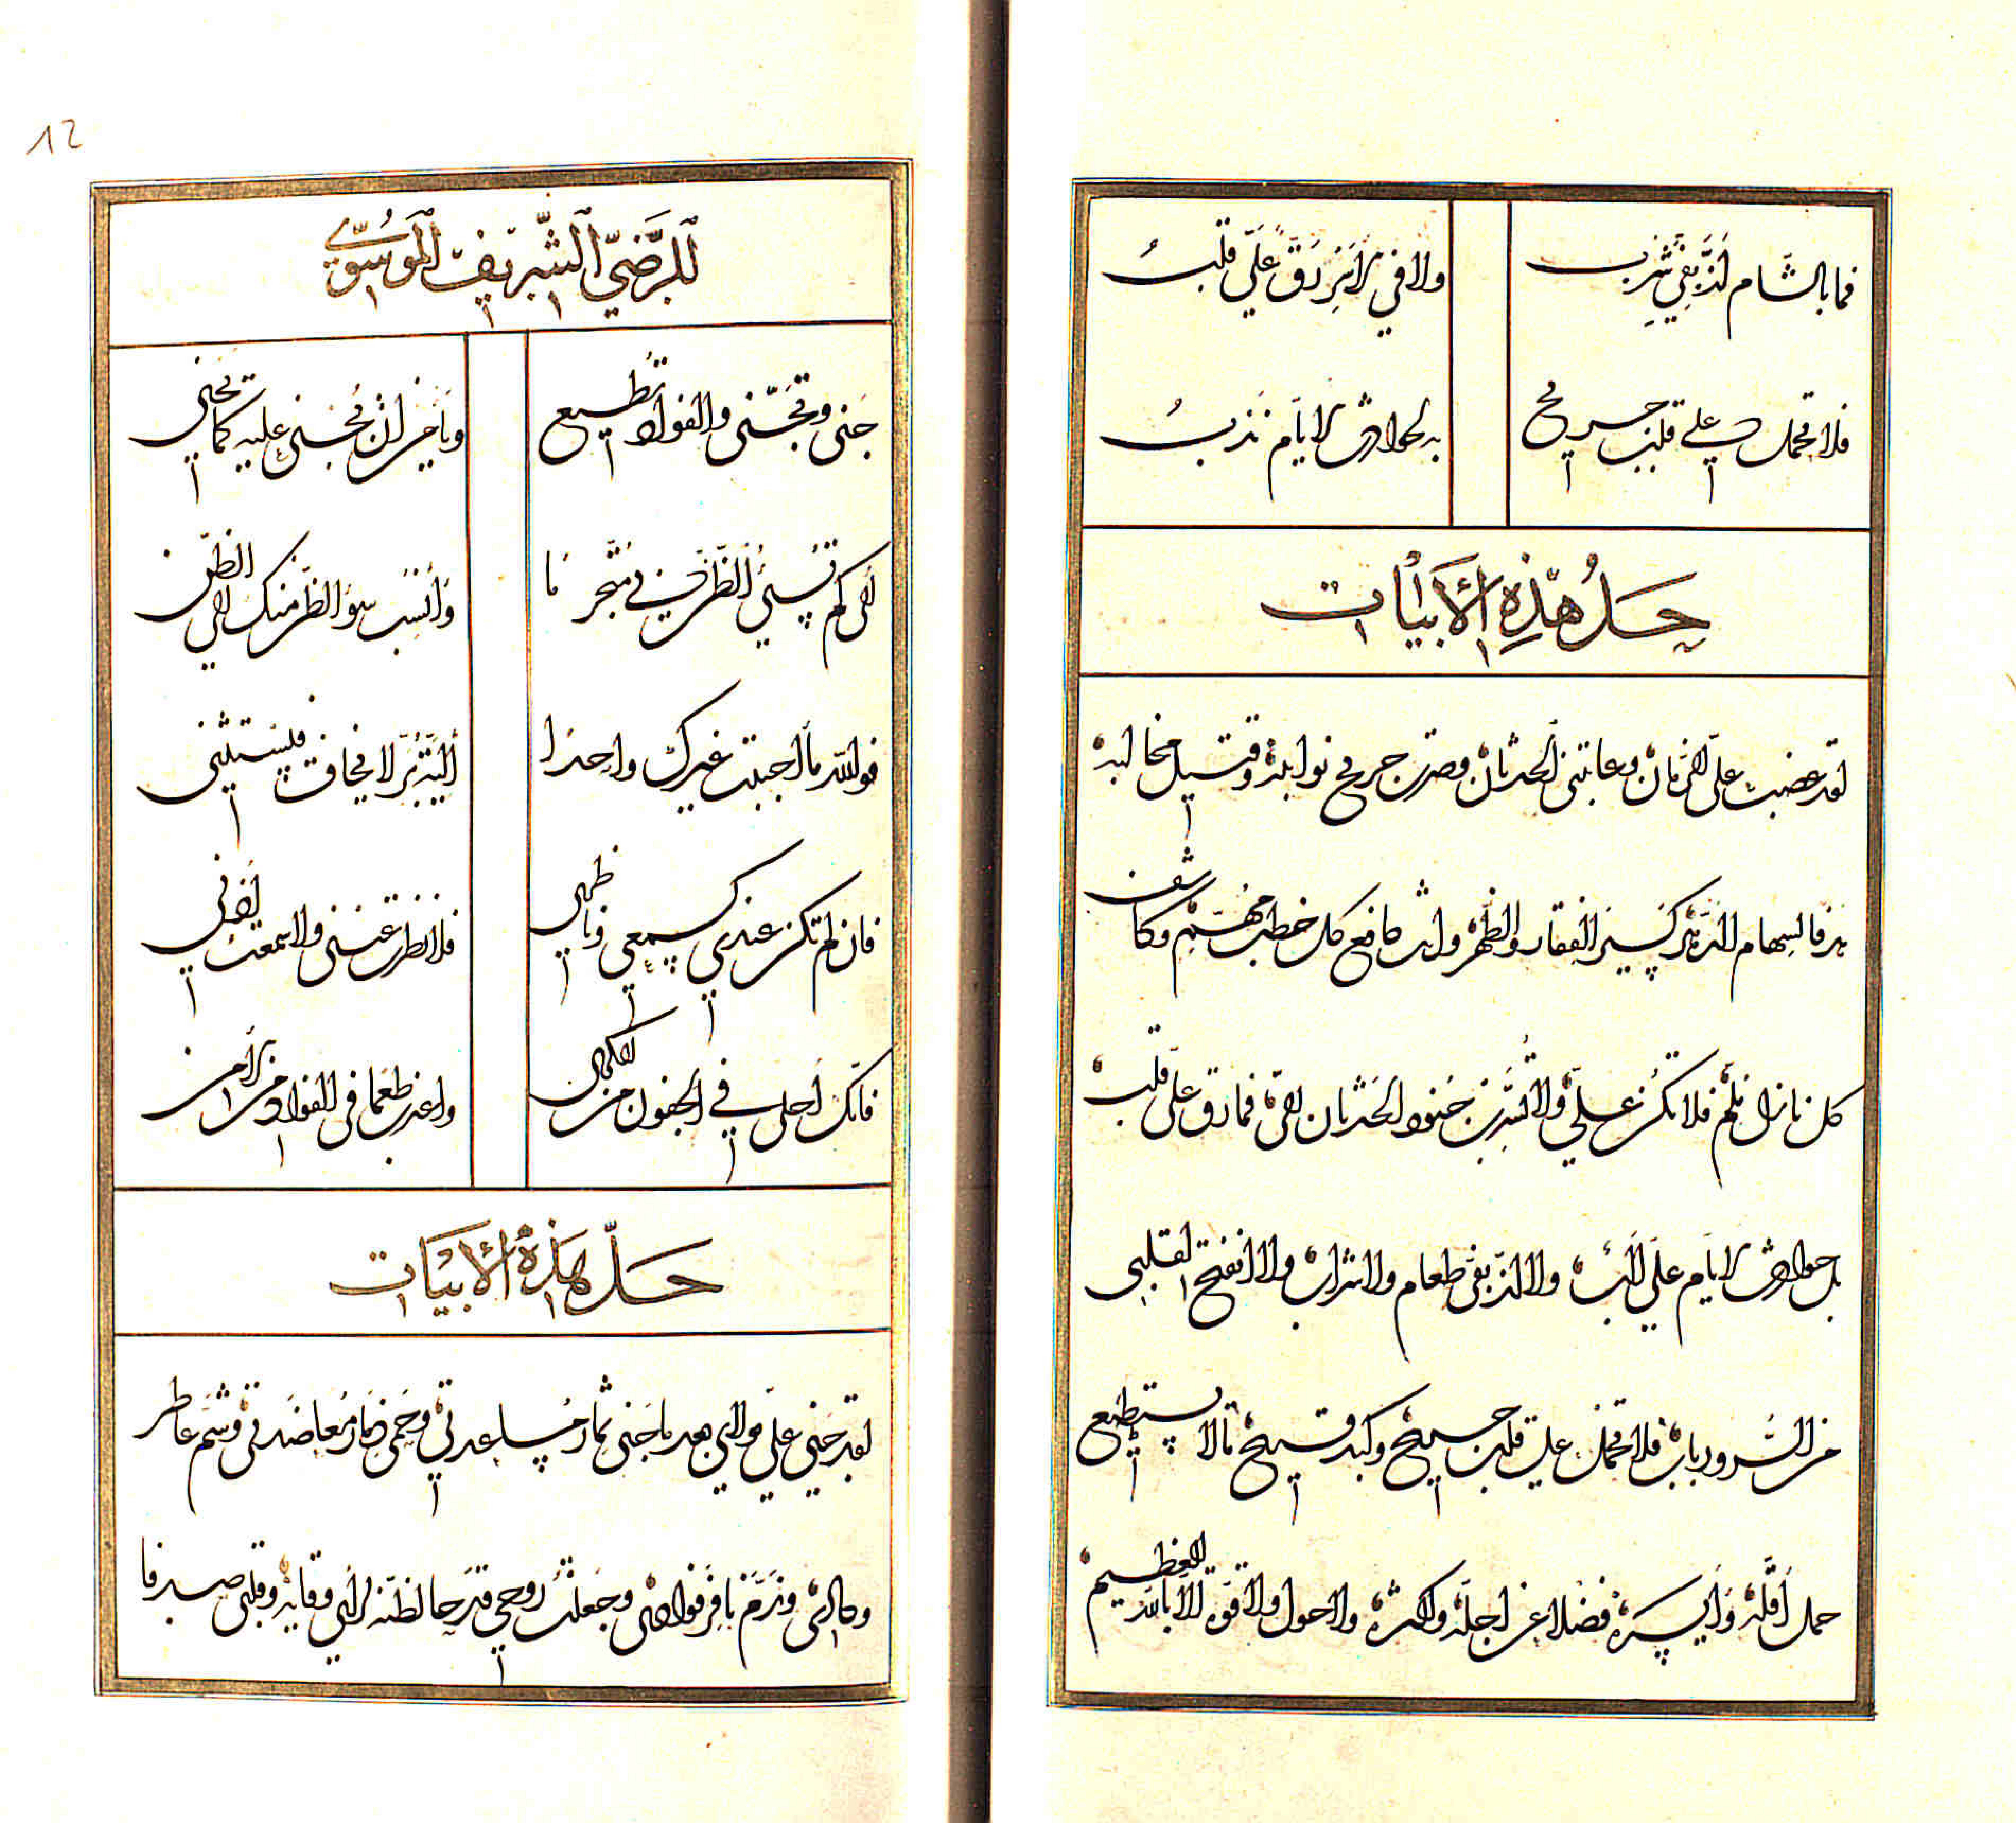 فما بالشام لذ بفي شرب
ولا في الأمن رق علي قلب
فلا تحمل على قلب جريح
به لحوادث الأيام ندب
حل هذه الأبيات
لقد غضبت على الزمان وعاتبني الحدثان وصرت جريح نوائبه وقتيل مخالبه
هدفا لسهام الدهر كسير الفقار والظهر وأنت دافع كل خطب مهم وكاشف
كل نازل ملم فلا تكن علي ولا تسرب جنود الحدثان إلي فما رق علي قلب
بل حوادث الأيام علي إلب ولا لذ بفي طعام ولا شراب ولا انفتح لقلبي
من السرور باب فلا تحمل على قلب جريح وكبد قريح ما لا يستطيع
حمل أقله وأيسره فضلا عن أجله وأكثره ولا حول ولا قوة إلا بالله العظيم
12
للرضي الشريف الموسوي
جنى وتجنى والفؤاد يطيع
ويأمن أن يجنى عليه كما يجني
إلى كم تسيء الظن في متجرما
وأنسب سوء الظن منك إلى الظن
فوالله ما أحببت غيرك واحدا
ألية بر لا يخاف فيستثني
فإن لم تكن عندي كسمعي وناظري
فلا نظرت عيني ولا سمعت أذني
فإنك أحلى في الجفون من الكرى
وأعذب طعما في الفؤاد من الأمن
حل هذه الأبيات
لقد جنى علي مولاي بعد ما جنى ثمار مساعدتي وحمى ذمار معاضدتي وشم عاطر
وجعلت روحي قدر حافظته لرأيي وقاية وقلبي صدفا